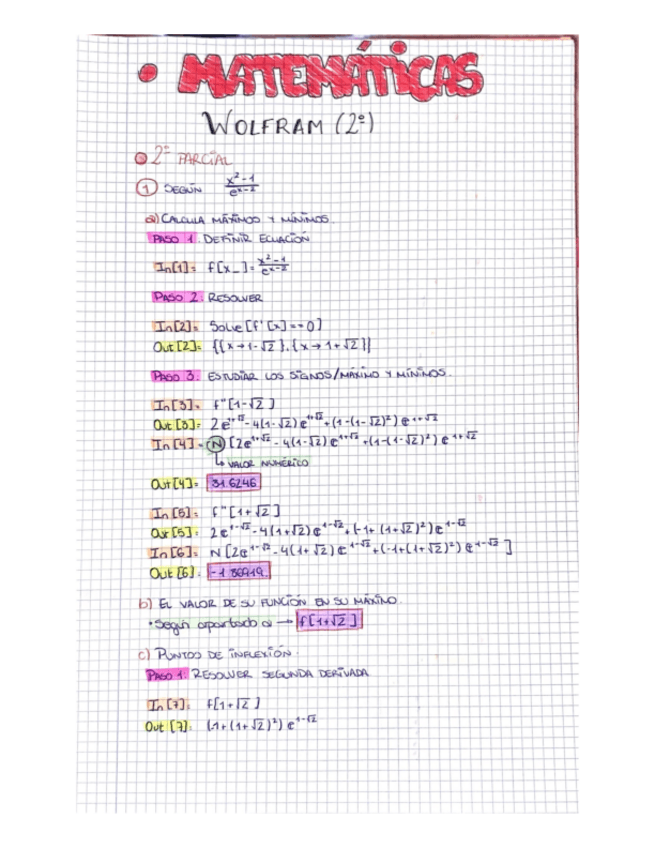 • MATEMÁTICAS
WOLFRAM (2º)
2º PARCIAL
1 SEGÚN x²-1 / e^x-2
a) CALCULA MÁXIMOS Y MÍNIMOS.
PASO 1. DEFINIR ECUACIÓN
In[1]= f[x_]= x²-1 / e^x-2
PASO 2. RESOLVER
In[2]= Solve[f'[x]==0]
Out[2]= {{x→1-√2},{x→1+√2}}
PASO 3. ESTUDIAR LOS SIGNOS/MÁXIMO Y MÍNIMOS.
In[3]= f"[1-√2]
Out[3]= 2e^1+√2 - 4(1-√2)e^1+√2 + (-1-(1-√2)²)e^1+√2
In[4]= N[2e^1+√2 - 4(1-√2)e^1+√2 + (-1-(1-√2)²)e^1+√2
↳ VALOR NUMÉRICO
Out[4]= 31.6246
In[5]= f"[1+√2]
Out[5]= 2e^1-√2 - 4(1+√2)e^1-√2 + (-1+(1+√2)²)e^1-√2
In[6]= N[2e^1-√2 - 4(1+√2)e^1-√2 + (-1+(1+√2)²)e^1-√2]
Out[6].
b) EL VALOR DE SU FUNCIÓN EN SU MÁXIMO.
• Según apartado a → f[1+√2]
c) PUNTOS DE INFLEXIÓN.
PASO 1: RESOLVER SEGUNDA DERIVADA
In[7]: f[1+√2]
Out[7]: (-1+(1+√2)²)e^1-√2